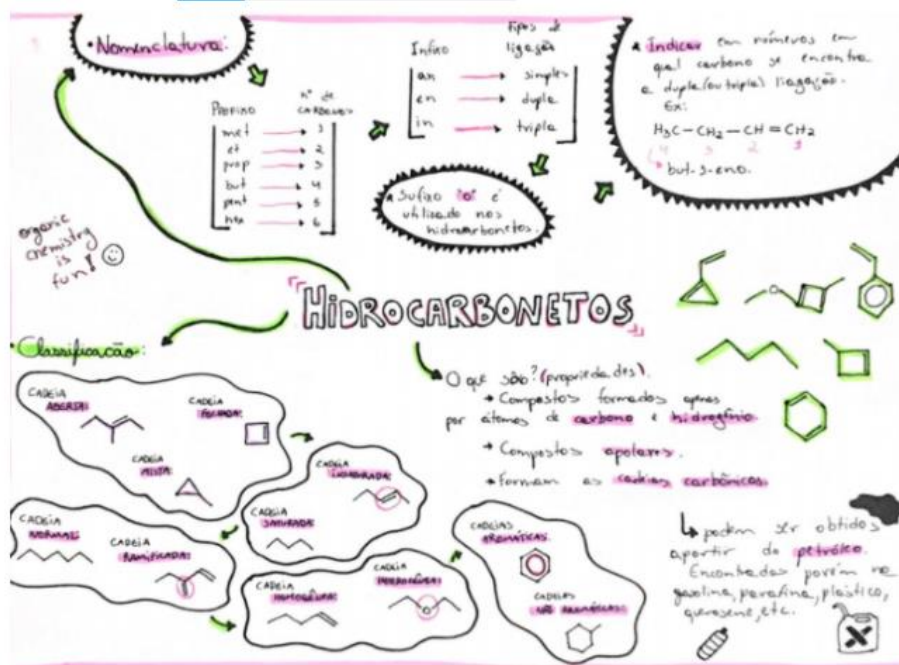 • Nomenclatura:
Prefixo nº de CARBONOS
met → 1
et → 2
prop → 3
but → 4
pent → 5
hex → 6
Infixo Tipos de ligação
an → simples
en → dupla
in → tripla
Sufixo "o" é
utilizado nos
hidrocarbonetos.
Indicar em números em
qual carbono se encontra
a dupla (ou tripla) ligação.
Ex:
H₃C – CH₂ – CH = CH₂
4 3 2 1
but-3-eno.
organic
chemistry
is
fun!
"HIDROCARBONETOS"
• Classificação:
CADEIA
ABERTA:
CADEIA
FECHADA:
CADEIA
MISTA:
CADEIA
INSATURADA:
CADEIA
SATURADA:
CADEIA
NORMAL:
CADEIA
RAMIFICADA:
CADEIA
HOMOGÊNEA:
CADEIA
HETEROGÊNEA:
O
CADEIAS
AROMÁTICAS:
CADEIAS
NÃO AROMÁTICAS:
O
O que são? (propriedades).
→ Compostos formados apenas
por átomos de carbono e hidrogênio
→ Compostos apolares.
→ Formam as cadeias carbônicas.
↳ podem ser obtidos
apartir do petróleo.
Encontrados porém na
gasolina, parafina, plástico,
querosene, etc.